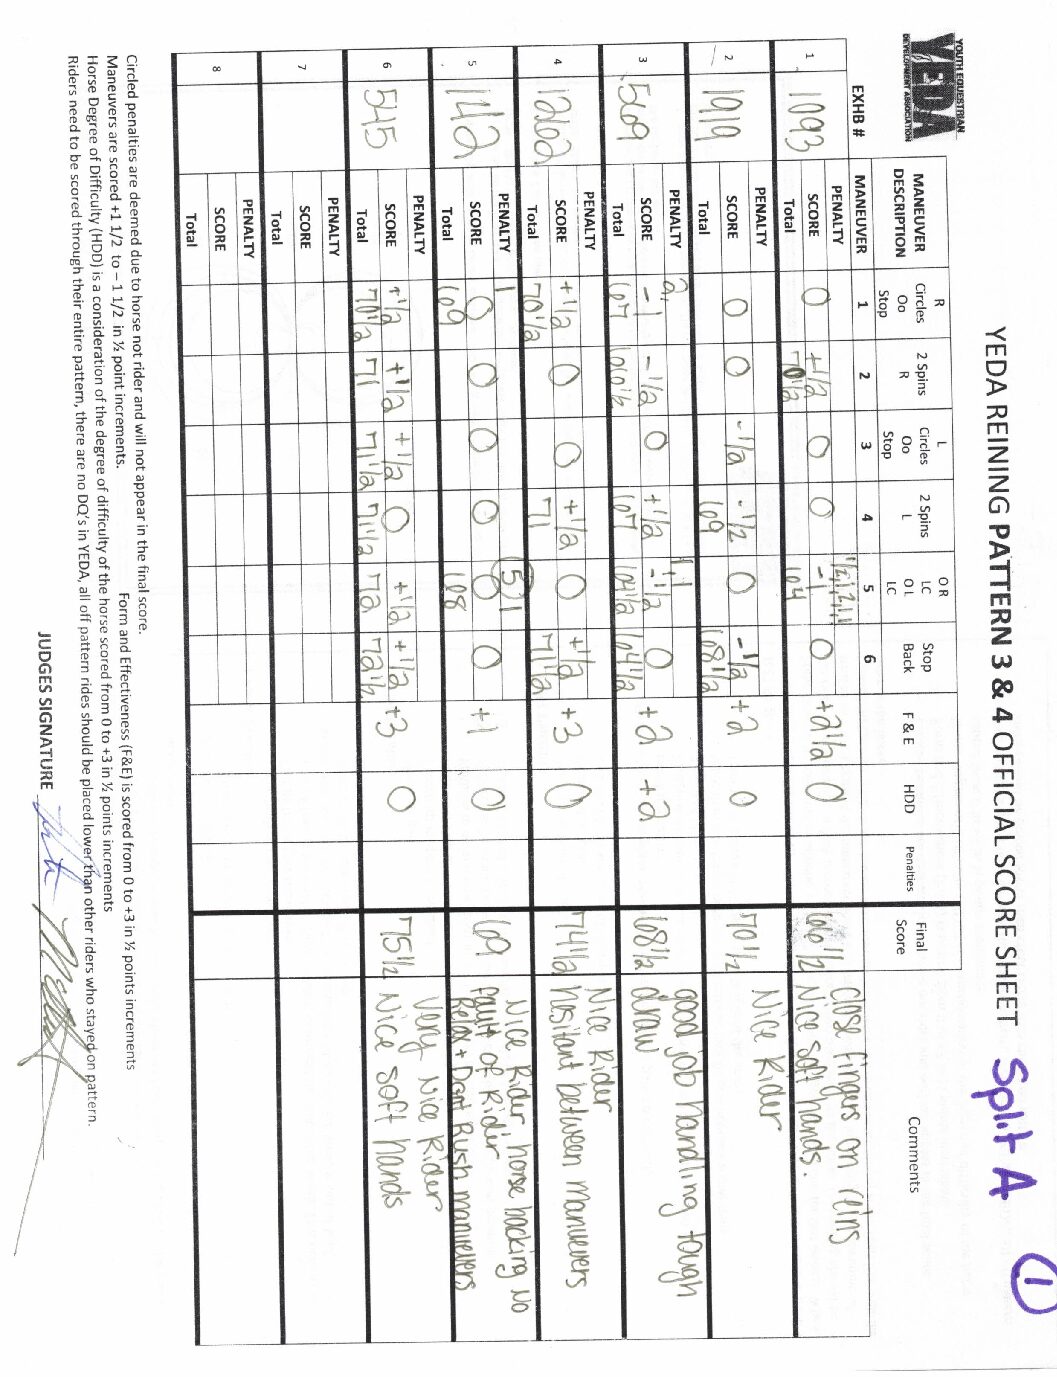 YOUTH EQUESTRIAN
YEDA
DEVELOPMENT ASSOCIATION
YEDA REINING PATTERN 3 & 4 OFFICIAL SCORE SHEET Split A 1
EXHB # MANEUVER DESCRIPTION R Circles Oo Stop 2 Spins R L Circles Oo Stop 2 Spins L O R LC O L LC Stop Back F & E HDD Penalties Final Score Comments
MANEUVER 1 2 3 4 5 6
1 1093
PENALTY 1/2,1,2,1,1
SCORE 0 +1/2 0 0 -1 0 +2 1/2 0 66 1/2 close fingers on reins
Total 70 1/2 64 Nice soft hands.
2 1919
PENALTY
SCORE 0 0 -1/2 -1/2 0 -1/2 +2 0 70 1/2 Nice Rider
Total 69 68 1/2
3 569
PENALTY 2,1 1,1
SCORE -1 -1/2 0 +1/2 -1/2 0 +2 +2 68 1/2 good job handling tough
Total 67 66 1/2 67 64 1/2 64 1/2 draw
4 1262
PENALTY
SCORE +1/2 0 0 +1/2 0 +1/2 +3 0 74 1/2 Nice Rider
Total 70 1/2 71 71 1/2 hesitant between manuevers
5 142
PENALTY 1 5 1
SCORE 0 0 0 0 0 0 +1 0 69 Nice Rider, horse backing no
Total 69 68 fault of Rider
Relax + Dont Rush manuevers
6 545
PENALTY
SCORE +1/2 +1/2 +1/2 0 +1/2 +1/2 +3 0 75 1/2 Very Nice Rider
Total 70 1/2 71 71 1/2 71 1/2 72 72 1/2 Nice soft hands
7
PENALTY
SCORE
Total
8
PENALTY
SCORE
Total
Circled penalties are deemed due to horse not rider and will not appear in the final score.
Maneuvers are scored +1 1/2 to – 1 1/2 in ½ point increments. Form and Effectiveness (F&E) is scored from 0 to +3 in ½ points increments
Horse Degree of Difficulty (HDD) is a consideration of the degree of difficulty of the horse scored from 0 to +3 in ½ points increments
Riders need to be scored through their entire pattern, there are no DQ's in YEDA, all off pattern rides should be placed lower than other riders who stayed on pattern.
JUDGES SIGNATURE